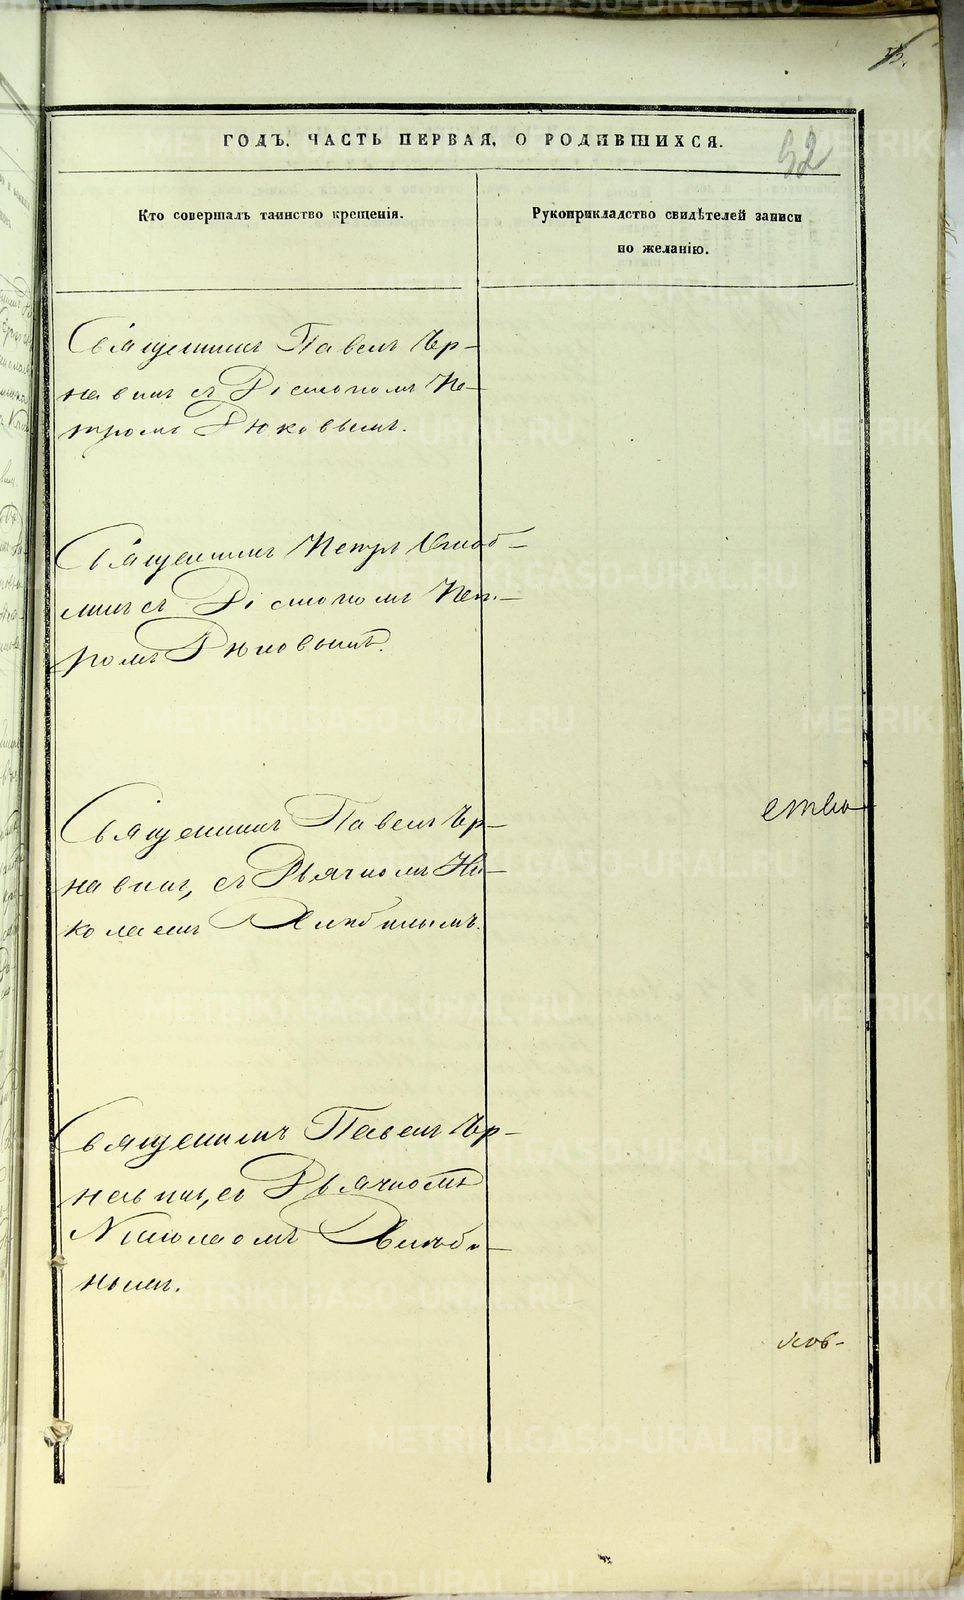 52
ГОДЪ. ЧАСТЬ ПЕРВАЯ, О РОДИВШИХСЯ.
Кто совершалъ таинство крещенія.
Рукоприкладство свидѣтелей записи
по желанію.
Священникъ Павелъ Чер-
навинъ съ Діакономъ Пе-
тромъ Дюковымъ.
Священникъ Петръ
съ Діакономъ Пет-
ромъ Дюковымъ.
Священникъ Павелъ Чер-
навинъ, съ Дьячкомъ Ни-
колаемъ
ство
Священникъ Павелъ Чер-
навинъ, съ Дьячкомъ
Николаомъ
нымъ.
ков-
METRIKI.GASO-URAL.RU